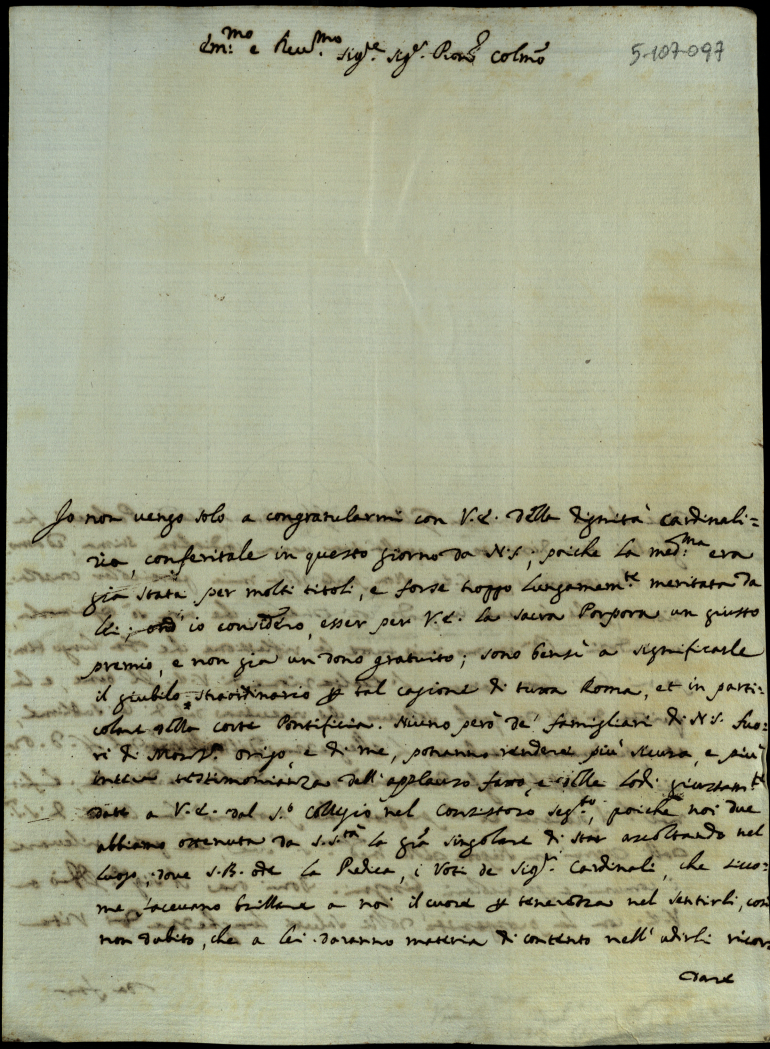 Em:mo e Reu.mo Sig.re Sig.r Pron̄ Colmo
5-107-097
Io non uengo solo a congratularmi con V.E. della dignità Cardinali=
zia, conferitale in questo giorno da N.S; poiche la med:ma era
già stata per molti titoli, e forse troppo lungamen.te meritata da
lei; ond' io considero, esser per V.E. la sacra Porpora un giusto
premio, e non già un dono gratuito; sono bensì a significarle
il giubilo straordinario p tal cagione di tutta Roma, et in parti=
colare della corte Pontificia. Niuno però de' famigliari di N.S. fuo=
ri di Mons.r Origo, e di me, potranno rendere più sicura, e più
intera testimonianza dell'applauso fatto, e delle lodi giustam.te
date a V.E. dal S.o Collegio nel Consistoro seg.to, poiche noi due
abbiamo ottenuta da S.S.tà la gr̄a singolare di star ascoltando nel
luogo, doue S.B. ode la Predica, i Voti de Sig.ri Cardinali, che sico=
me faceuano brillare a noi il cuore p tenerezza nel sentirli, così
non dubito, che a lei daranno materia di contento nell' udirli ricor=
dare